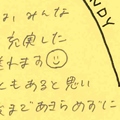 は、みんな
充実した
れます
ともあると思い
までであきらめずに
NDY